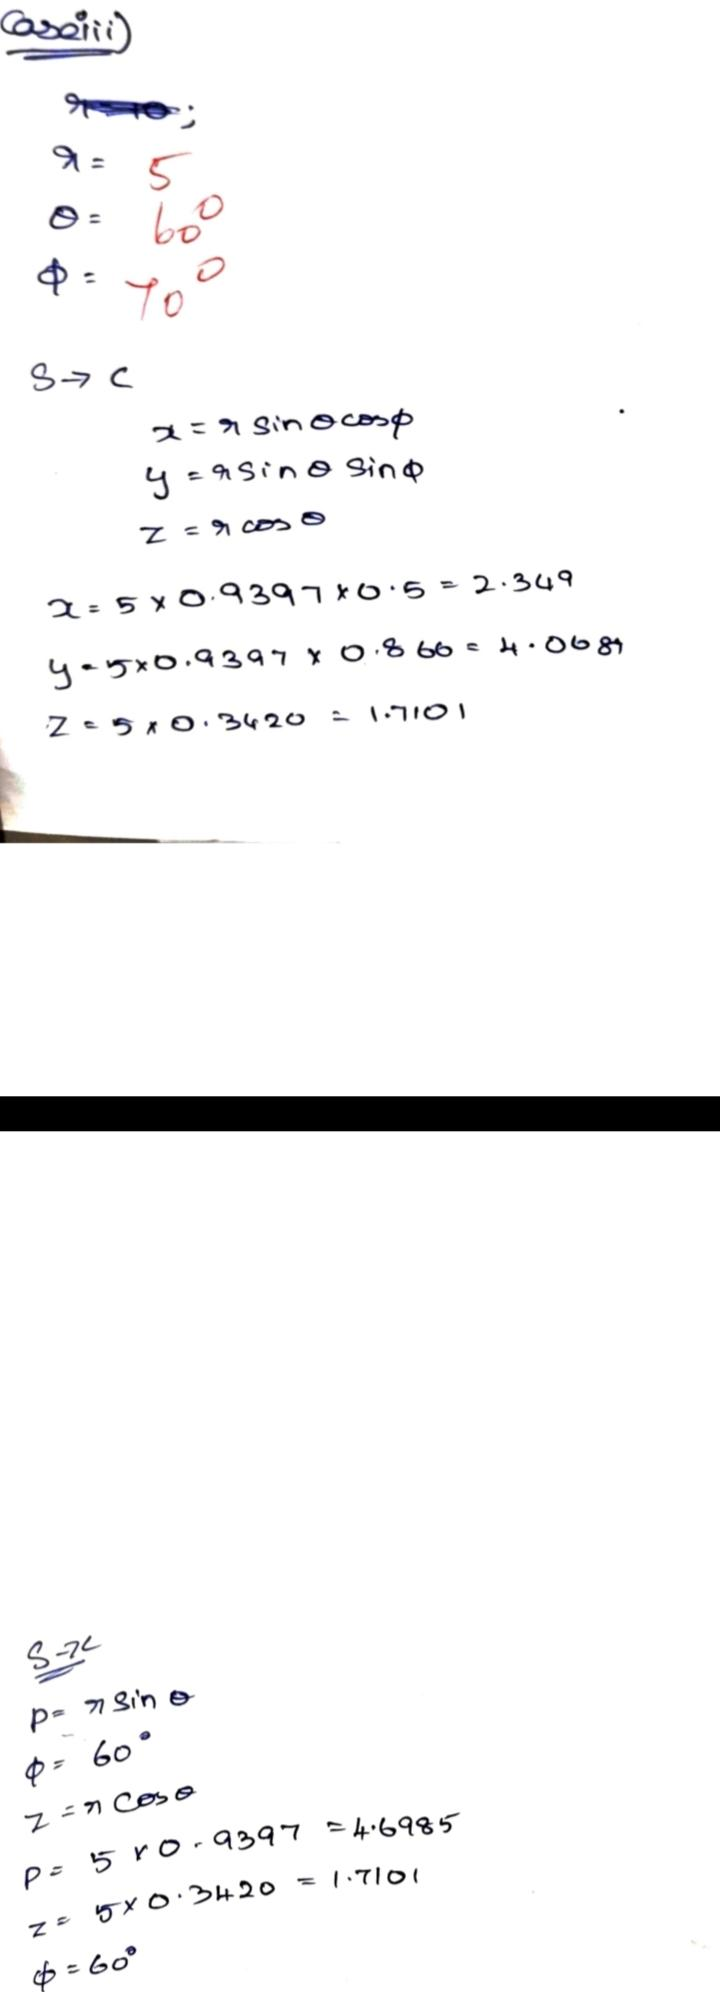 Case iii)
r = 5
θ = 60°
ϕ = 70°
S → C
x = r sin θ cos ϕ
y = r sin θ sin ϕ
z = r cos θ
x = 5 x 0.9397 x 0.5 = 2.349
y = 5 x 0.9397 x 0.866 = 4.0689
z = 5 x 0.3420 = 1.7101
S → C
ρ = r sin θ
ϕ = 60°
z = r cos θ
ρ = 5 x 0.9397 = 4.6985
z = 5 x 0.3420 = 1.7101
ϕ = 60°